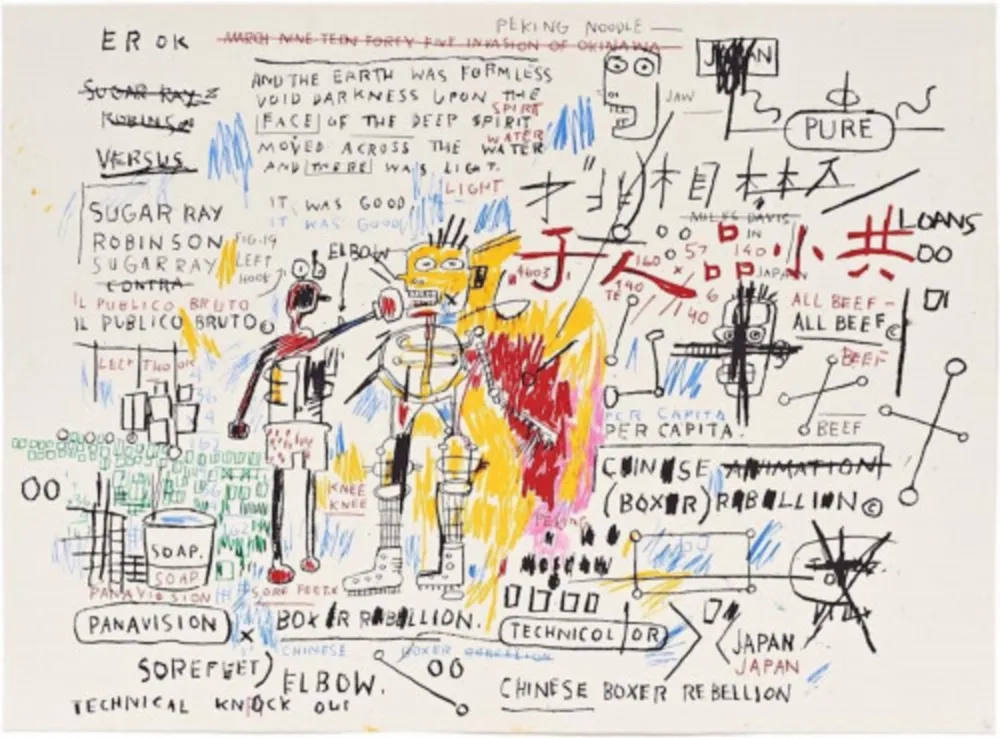 PEKING NOODLE
EROK
MARCH NINE TEEN FORTY FIVE INVASION OF OKINAWA
JAPAN
SUGAR RAY
ROBINSON
VERSUS
AND THE EARTH WAS FORMLESS
VOID DARKNESS UPON THE
SPIRIT
FACE OF THE DEEP SPIRIT
WATER
MOVED ACROSS THE WATER
AND THERE WAS LIGHT.
LIGHT
JAW
PURE
IT WAS GOOD
IT WAS GOOD
SUGAR RAY
ROBINSON
SUGAR RAY
CONTRA
FIG. 19
LEFT
HOOK
ELBOW
IL PUBLICO BRUTO
IL PUBLICO BRUTO©
MILES DAVIS
IN
57
140
JAPAN
160
4603
140
6
40
人品小共
LOANS
OO
ALL BEEF
ALL BEEF©
BEEF
BEEF
PER CAPITA
PER CAPITA.
CHINESE ANIMATION
(BOXER) REBELLION©
OO
KNEE
KNEE
PEKING
MOSCOW
SOAP.
SOAP
PANAVISION
SORE FEET
PANAVISION
X
BOXER REBELLION.
TECHNICOLOR
CHINESE BOXER REBELLION
JAPAN
JAPAN
SOREFEET)
ELBOW.
OO
TECHNICAL KNOCK OUT
CHINESE BOXER REBELLION